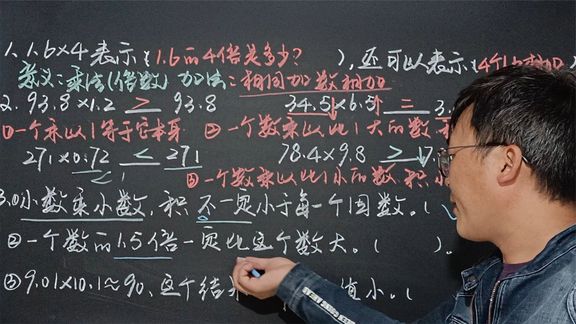 1. 1.6×4表示(1.6的4倍是多少?),还可以表示(4个1.6相加
意义:乘法(倍数) 加法:相同加数相加
2. 93.8×1.2 > 93.8 34.5×6.5 = 3.
①一个乘以1等于它本身 ②一个数乘以比1大的数
271×0.72 < 271 78.4×9.8 > 7.
<1
③一个数乘以比1小的数,积小
3.①小数乘小数,积不一定小于每一个因数。(
②一个数的1.5倍一定比这个数大。( )。
③9.01×10.1≈90,这个结果 值小。(